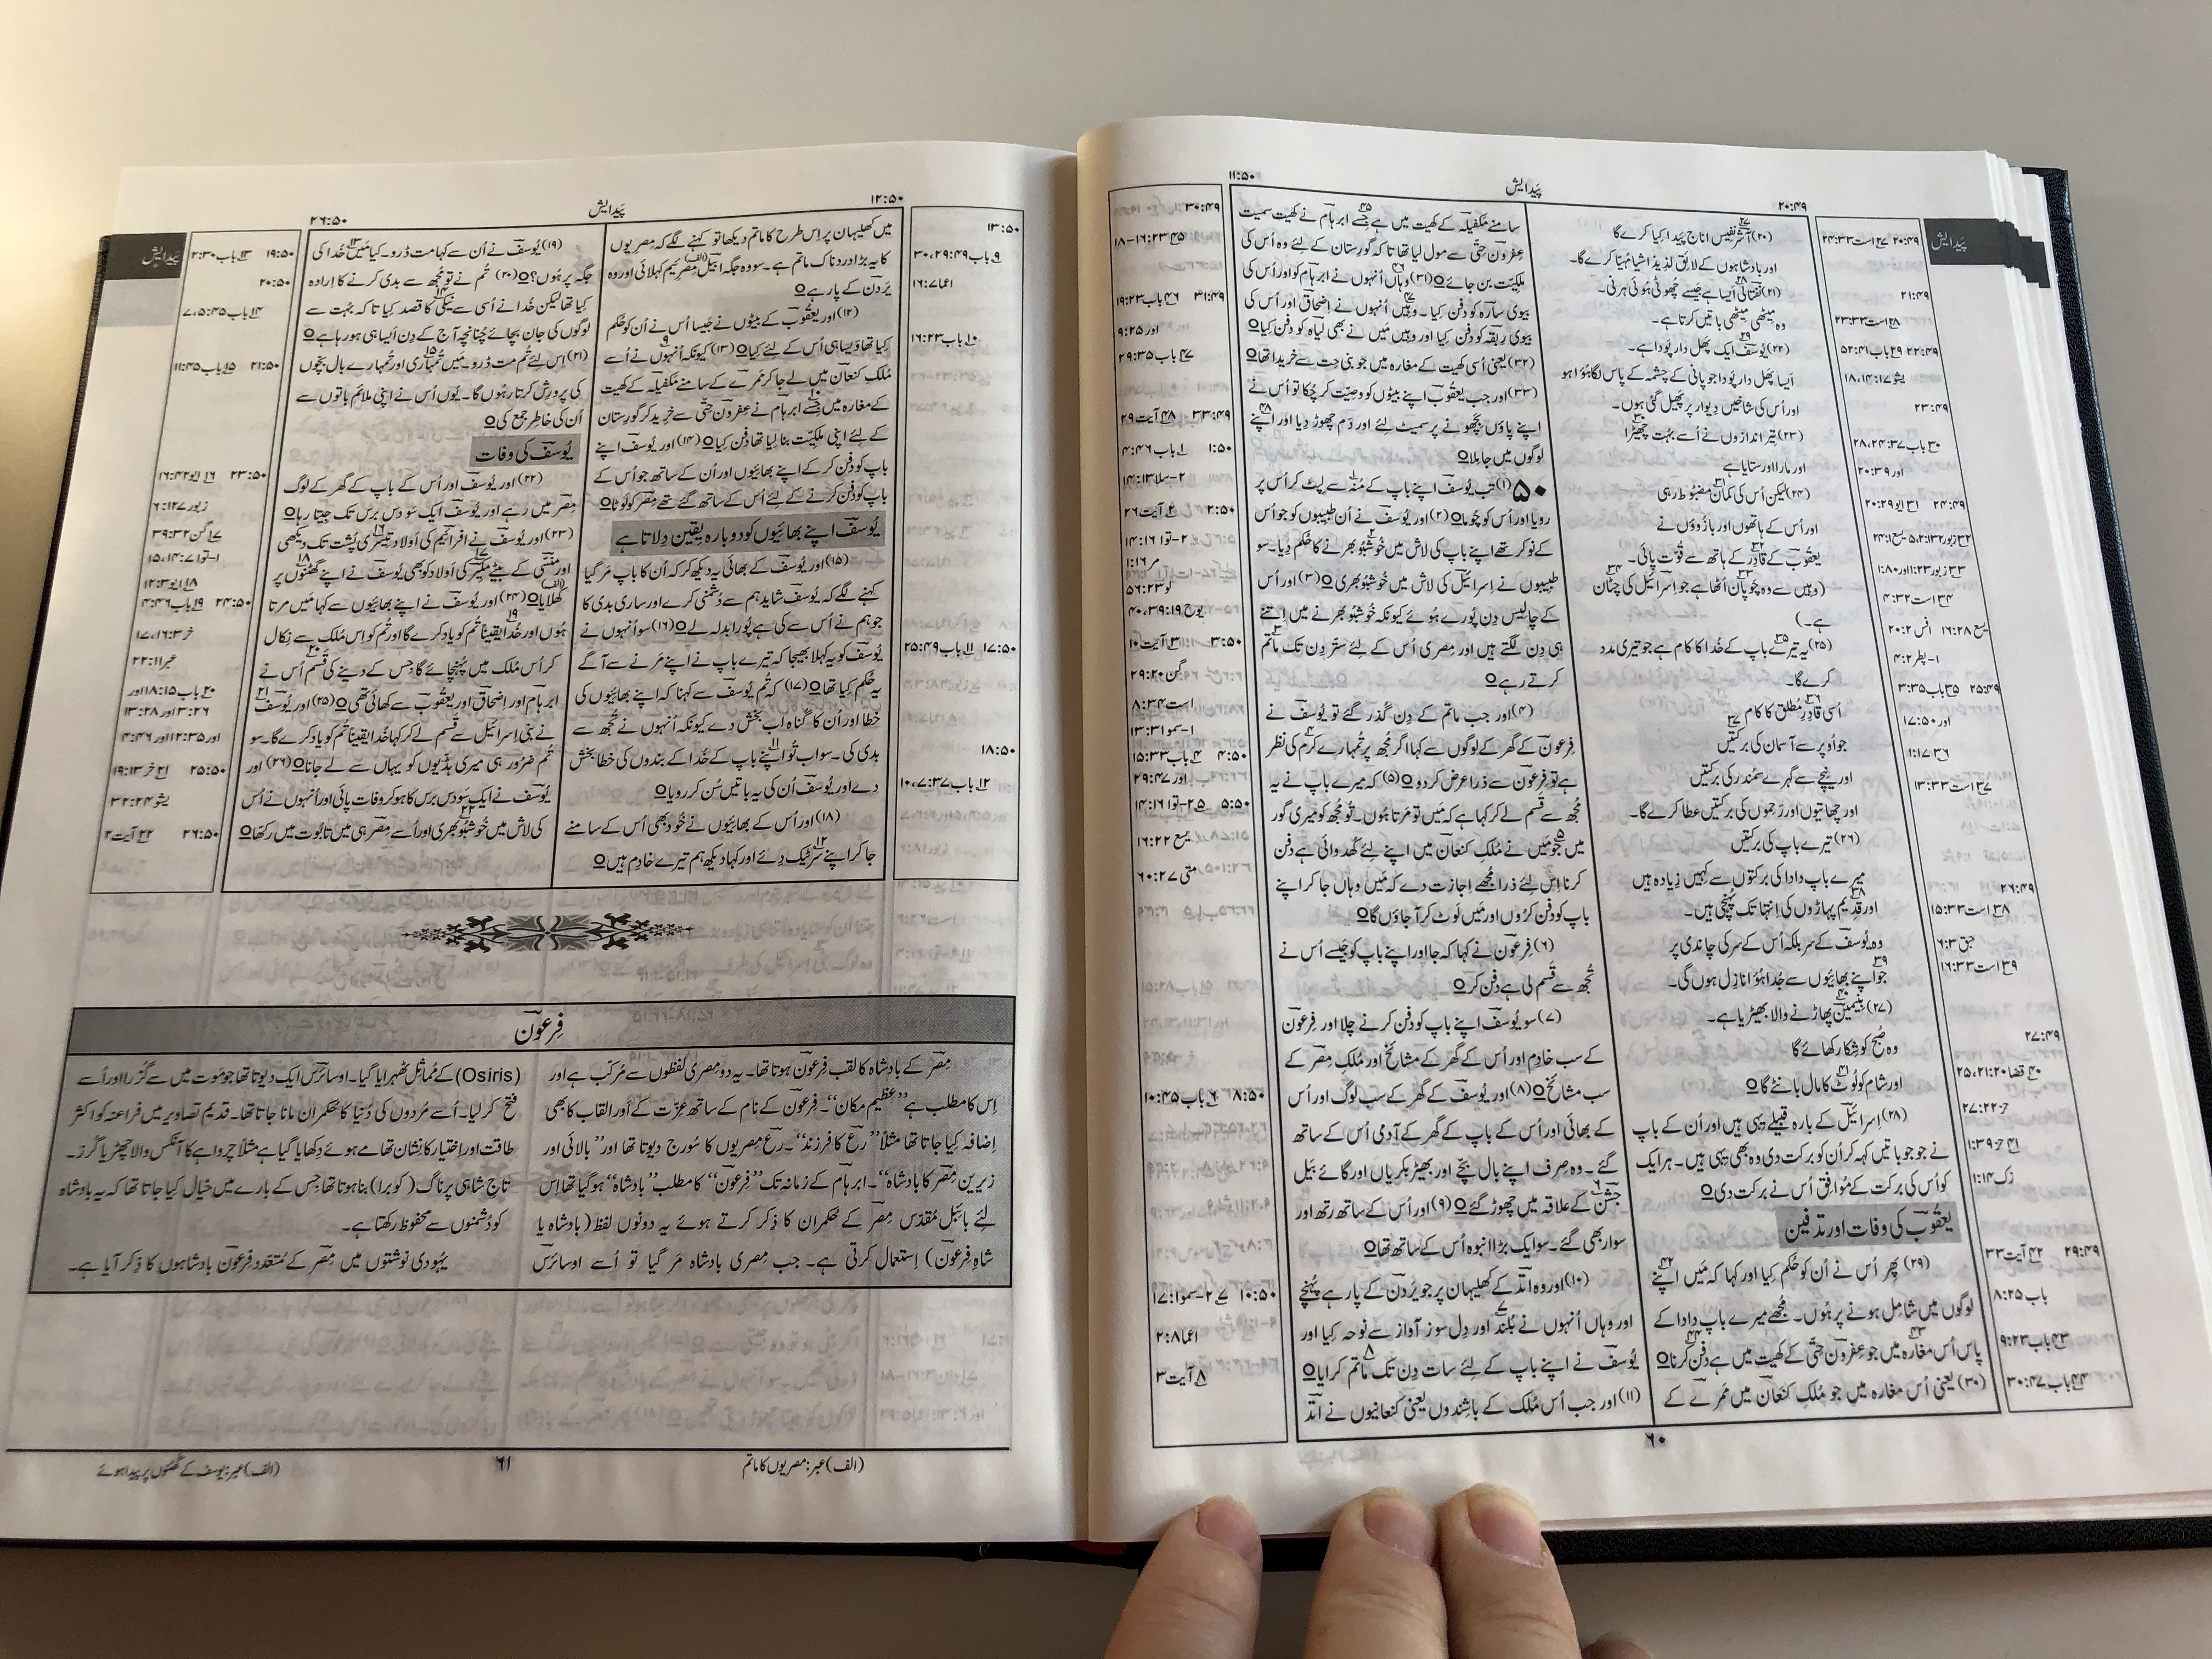 ۲۰:۴۹
پَیدایش
۱۱:۵۰
پَیدایش
(۲۰) آشر نفیس اناج پَیدا کِیا کرے گا
اور بادشاہوں کے لائِق لذِیذ اشیا مُہیّا کرے گا۔
(۲۱) نفتالی اَیسا ہے جَیسے چُھوٹی ہُوئی ہرنی۔
وہ مِیٹھی مِیٹھی باتیں کرتا ہے۔
(۲۲) یُوسفؔ ایک پھل دار پَودا ہے۔
اَیسا پھل دار پَودا جو پانی کے چشمہ کے پاس لگا ہُؤا ہو
اور اُس کی شاخیں دِیوار پر پَھیل گئی ہوں۔
(۲۳) تِیر اندازوں نے اُسے بہُت چھیڑا
اور مارا اور ستایا ہے
(۲۴) لیکن اُس کی کمان مضبُوط رہی
اور اُس کے ہاتھوں اور بازُوؤں نے
یعقُوبؔ کے قادِر کے ہاتھ سے قُوّت پائی۔
(وہیں سے وہ چَوپان اُٹھا ہے جو اِسرائیلؔ کی چٹان
ہے۔)
(۲۵) یہ تیرے باپ کے خُدا کا کام ہے جو تیری مدد
کرے گا۔
اُسی قادرِ مُطلق کا کام
جو اُوپر سے آسمان کی برکتیں
اور نِیچے سے گہرے سمُندر کی برکتیں
اور چھاتیوں اور رَحِموں کی برکتیں عطا کرے گا۔
(۲۶) تیرے باپ کی برکتیں
میرے باپ دادا کی برکتوں سے کہیں زِیادہ ہیں
اور قدِیم پہاڑوں کی اِنتہا تک پُہنچی ہیں۔
وہ یُوسفؔ کے سر بلکہ اُس کے سر کی چاندی پر
جو اپنے بھائیوں سے جُدا ہُؤا نازِل ہوں گی۔
(۲۷) بِنیمِینؔ پھاڑنے والا بھیڑیا ہے۔
وہ صُبح کو شِکار کھائے گا
اور شام کو لُوٹ کا مال بانٹے گا
(۲۸) اِسرائیلؔ کے بارہ قبِیلے یہی ہیں اور اُن کے باپ
نے جو جو باتیں کہہ کر اُن کو برکت دی وہ بھی یہی ہیں۔ ہر ایک
کو اُس کی برکت کے مُوافِق اُس نے برکت دی
یعقُوبؔ کی وفات اور تدفین
(۲۹) پِھر اُس نے اُن کو حُکم کِیا اور کہا کہ مَیں اپنے
لوگوں میں شامِل ہونے پر ہُوں۔ مُجھے میرے باپ دادا کے
پاس اُس مغارہ میں جو عِفرونؔ حِتّی کے کھیت میں ہے دفن کرنا
(۳۰) یعنی اُس مغارہ میں جو مُلکِ کنعانؔ میں ممرے کے
سامنے مَکفیلہؔ کے کھیت میں ہے جِسے ابرہامؔ نے کھیت سمیت
عِفرونؔ حِتّی سے مول لِیا تھا تاکہ گورِستان کے لِئے وہ اُس کی
مِلکیّت بن جائے (۳۱) وہاں اُنہوں نے ابرہامؔ کو اور اُس کی
بیوی سارہ کو دفن کِیا۔ وہیں اُنہوں نے اِضحاق اور اُس کی
بیوی رِبقہؔ کو دفن کِیا اور وہیں مَیں نے بھی لیاہ کو دفن کِیا
(۳۲) یعنی اُسی کھیت کے مغارہ میں جو بنی حِت سے خریدا تھا
(۳۳) اور جب یعقُوبؔ اپنے بیٹوں کو وصِیّت کر چُکا تو اُس نے
اپنے پاؤں بِچھونے پر سمیٹ لِئے اور دَم چھوڑ دِیا اور اپنے
لوگوں میں جا مِلا
۵۰ (۱) تب یُوسفؔ اپنے باپ کے مُنہ سے لِپٹ کر اُس پر
رویا اور اُس کو چُوما (۲) اور یُوسفؔ نے اُن طبِیبوں کو جو اُس
کے نوکر تھے اپنے باپ کی لاش میں خُوشبُو بھرنے کا حُکم دِیا۔ سو
طبِیبوں نے اِسرائیلؔ کی لاش میں خُوشبُو بھری (۳) اور اُس
کے چالِیس دِن پُورے ہُوئے کیونکہ خُوشبُو بھرنے میں اِتنے
ہی دِن لگتے ہیں اور مِصری اُس کے لِئے ستّر دِن تک ماتم
کرتے رہے
(۴) اور جب ماتم کے دِن گُذر گئے تو یُوسفؔ نے
فِرعونؔ کے گھر کے لوگوں سے کہا اگر مُجھ پر تُمہارے کرم کی نظر
ہے تو فِرعونؔ سے ذرا عرض کر دو (۵) کہ میرے باپ نے یہ
مُجھ سے قَسم لے کر کہا ہے کہ مَیں تو مَرتا ہُوں۔ تُو مُجھ کو میری گور
میں جو مَیں نے مُلکِ کنعانؔ میں اپنے لِئے کُھدوائی ہے دفن
کرنا اِس لِئے ذرا مُجھے اِجازت دے کہ مَیں وہاں جا کر اپنے
باپ کو دفن کرُوں اور مَیں لَوٹ کر آ جاؤں گا
(۶) فِرعونؔ نے کہا کہ جا اور اپنے باپ کو جَیسے اُس نے
تُجھ سے قَسم لی ہے دفن کر
(۷) سو یُوسفؔ اپنے باپ کو دفن کرنے چلا اور فِرعونؔ
کے سب خادِم اور اُس کے گھر کے مشائخ اور مُلکِ مِصرؔ کے
سب مشائخ (۸) اور یُوسفؔ کے گھر کے سب لوگ اور اُس
کے بھائی اور اُس کے باپ کے گھر کے آدمی اُس کے ساتھ
گئے۔ وہ صِرف اپنے بال بچّے اور بھیڑ بکریاں اور گائے بَیل
جشنؔ کے علاقہ میں چھوڑ گئے (۹) اور اُس کے ساتھ رتھ اور
سوار بھی گئے۔ سو ایک بڑا انبوہ اُس کے ساتھ تھا
(۱۰) اور وہ اتدؔ کے کھلیہان پر جو یَردنؔ کے پار ہے پُہنچے
اور وہاں اُنہوں نے بُلند اور دِل سوز آواز سے نَوحہ کِیا اور
یُوسفؔ نے اپنے باپ کے لِئے سات دِن تک ماتم کرایا
(۱۱) اور جب اُس مُلک کے باشِندوں یعنی کنعانیوں نے اتدؔ
۶۰
۱۲:۵۰
پَیدایش
۲۶:۵۰
پَیدایش
میں کھلیہان پر اِس طرح کا ماتم دیکھا تو کہنے لگے کہ مِصریوں
کا یہ بڑا دردناک ماتم ہے۔ سو وہ جگہ ابیلؔ مِصرئیم کہلائی اور وہ
یَردنؔ کے پار ہے
(۱۲) اور یعقُوبؔ کے بیٹوں نے جَیسا اُس نے اُن کو حُکم
کِیا تھا وَیسا ہی اُس کے لِئے کِیا (۱۳) کیونکہ اُنہوں نے اُسے
مُلکِ کنعانؔ میں لے جا کر ممرے کے سامنے مَکفیلہؔ کے کھیت
کے مغارہ میں جِسے ابرہامؔ نے عِفرونؔ حِتّی سے خرید کر گورِستان
کے لِئے اپنی مِلکیّت بنا لِیا تھا دفن کِیا (۱۴) اور یُوسفؔ اپنے
باپ کو دفن کر کے اپنے بھائیوں اور اُن کے ساتھ جو اُس کے
باپ کو دفن کرنے کے لِئے اُس کے ساتھ گئے تھے مِصرؔ کو لَوٹا
یُوسفؔ اپنے بھائیوں کو دوبارہ یقین دِلاتا ہے
(۱۵) اور یُوسفؔ کے بھائی یہ دیکھ کر کہ اُن کا باپ مَر گیا
کہنے لگے کہ یُوسفؔ شاید ہم سے دُشمنی کرے اور ساری بدی کا
جو ہم نے اُس سے کی ہے پُورا بدلہ لے (۱۶) سو اُنہوں نے
یُوسفؔ کو یہ کہلا بھیجا کہ تیرے باپ نے اپنے مَرنے سے آگے
یہ حُکم کِیا تھا (۱۷) کہ تُم یُوسفؔ سے کہنا کہ اپنے بھائیوں کی
خطا اور اُن کا گُناہ اب بخش دے کیونکہ اُنہوں نے تُجھ سے
بدی کی۔ سو اب تُو اپنے باپ کے خُدا کے بندوں کی خطا بخش
دے اور یُوسفؔ اُن کی یہ باتیں سُن کر رویا
(۱۸) اور اُس کے بھائیوں نے خُود بھی اُس کے سامنے
جا کر اپنے سر ٹیک دِئے اور کہا دیکھ ہم تیرے خادِم ہیں
(۱۹) یُوسفؔ نے اُن سے کہا مت ڈرو۔ کیا مَیں خُدا کی
جگہ پر ہُوں؟ (۲۰) تُم نے تو مُجھ سے بدی کرنے کا اِرادہ
کِیا تھا لیکن خُدا نے اُسی سے نیکی کا قصد کِیا تاکہ بہُت سے
لوگوں کی جان بچائے چُنانچہ آج کے دِن اَیسا ہی ہو رہا ہے
(۲۱) اِس لِئے تُم مت ڈرو۔ مَیں تُمہاری اور تُمہارے بال بچّوں
کی پرورِش کرتا رہُوں گا۔ یُوں اُس نے اپنی مُلائِم باتوں سے
اُن کی خاطِر جمع کی
یُوسفؔ کی وفات
(۲۲) اور یُوسفؔ اور اُس کے باپ کے گھر کے لوگ
مِصرؔ میں رہے اور یُوسفؔ ایک سَو دس برس تک جِیتا رہا
(۲۳) اور یُوسفؔ نے افرائیمؔ کی اَولاد تِیسری پُشت تک دیکھی
اور منسّیؔ کے بیٹے مکیرؔ کی اَولاد کو بھی یُوسفؔ نے اپنے گُھٹنوں پر
کِھلایا (۲۴) اور یُوسفؔ نے اپنے بھائیوں سے کہا مَیں مَرتا
ہُوں اور خُدا یقیناً تُم کو یاد کرے گا اور تُم کو اِس مُلک سے نِکال
کر اُس مُلک میں پُہنچائے گا جِس کے دینے کی قَسم اُس نے
ابرہامؔ اور اِضحاقؔ اور یعقُوبؔ سے کھائی تھی (۲۵) اور یُوسفؔ
نے بنی اِسرائیل سے قَسم لے کر کہا خُدا یقیناً تُم کو یاد کرے گا۔ سو
تُم ضرُور ہی میری ہڈّیوں کو یہاں سے لے جانا (۲۶) اور
یُوسفؔ نے ایک سَو دس برس کا ہو کر وفات پائی اور اُنہوں نے اُس
کی لاش میں خُوشبُو بھری اور اُسے مِصرؔ ہی میں تابُوت میں رکھا
فِرعَونؔ
مِصرؔ کے بادشاہ کا لقب فرعونؔ ہوتا تھا۔ یہ دو مِصری لفظوں سے مرکّب ہے اور
اِس کا مطلب ہے ”عظیم مکان“۔ فرعونؔ کے نام کے ساتھ عِزّت کے اَور القاب کا بھی
اِضافہ کِیا جاتا تھا مثلاً ”رعؔ کا فرزند“۔ رعؔ مِصریوں کا سُورج دیوتا تھا اور ”بالائی اور
زیرین مِصرؔ کا بادشاہ“۔ ابرہامؔ کے زمانہ تک ”فِرعَونؔ“ کا مطلب ”بادشاہ“ ہو گیا تھا اِس
لِئے بائبل مُقدّس مِصرؔ کے حُکمران کا ذِکر کرتے ہوئے یہ دونوں لفظ (بادشاہ یا
شاہِ فِرعَونؔ) اِستعمال کرتی ہے۔ جب مِصری بادشاہ مَر گیا تو اُسے اوسائرسؔ
(Osiris) کے مُماثِل ٹھہرایا گیا۔ اوسائرسؔ ایک دیوتا تھا جو مَوت میں سے گُزرا اور اُسے
فتح کر لیا۔ اُسے مُردوں کی دُنیا کا حُکمران مانا جاتا تھا۔ قدیم تصاویر میں فراعنہ کو اکثر
طاقت اور اِختیار کا نِشان تھامے ہوئے دِکھایا گیا ہے مثلاً چرواہے کا آنکس والا چھڑ یا گُرز۔
تاجِ شاہی پر ناگ (کوبرا) بنا ہوتا تھا جِس کے بارے میں خیال کِیا جاتا تھا کہ یہ بادشاہ
کو دُشمنوں سے محفوظ رکھتا ہے۔
یہُودی نوشتوں میں مِصرؔ کے مُتعدّد فِرعَونؔ بادشاہوں کا ذِکر آیا ہے۔
(الف) عبر: مصریوں کا ماتم
۶۱
(الف) عبر: یوسف کے گھٹنوں پر پیدا ہوئے